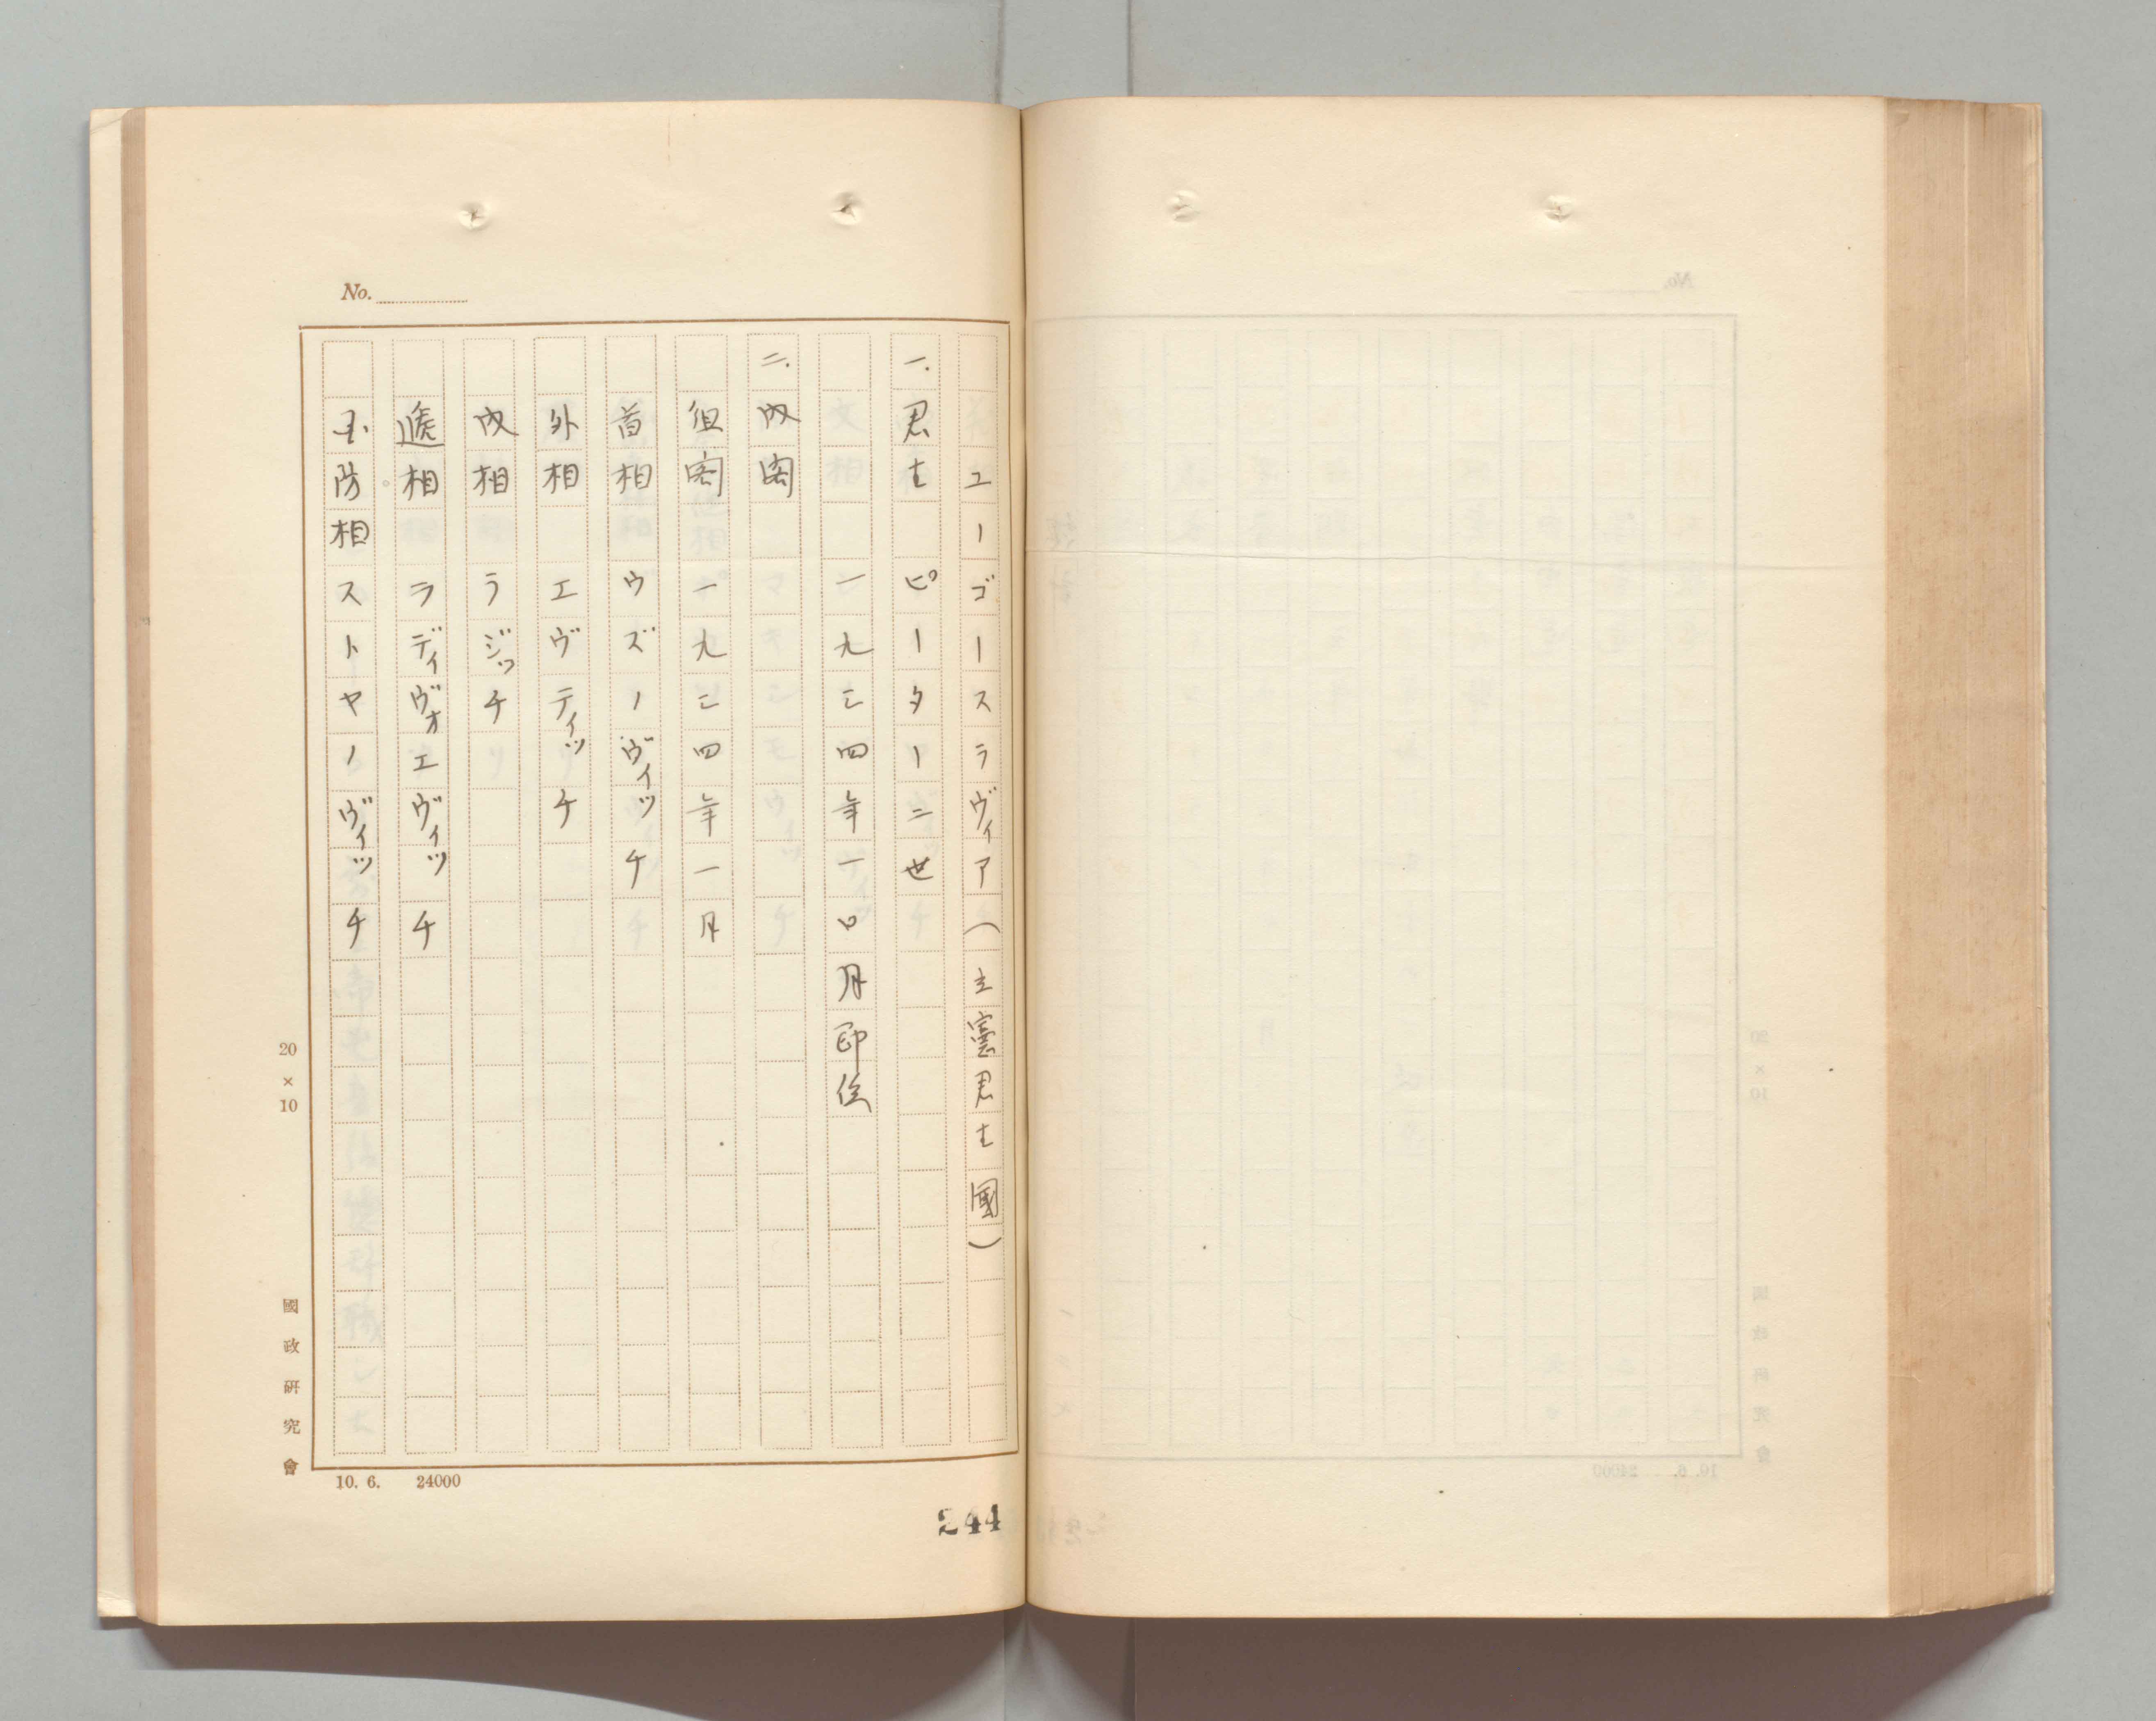 No.
ユーゴースラヴィア(立憲君主國)
一.君主 ピーター二世
一九三四年一〇月即位
二.内閣
組閣 一九三四年一月
首相 ウズノヴィッチ
外相 エヴティッチ
内相 ラジッチ
逓相 ラディヴォエヴィッチ
国防相 ストヤノヴィッチ
20×10
國政研究會
10. 6. 24000
244